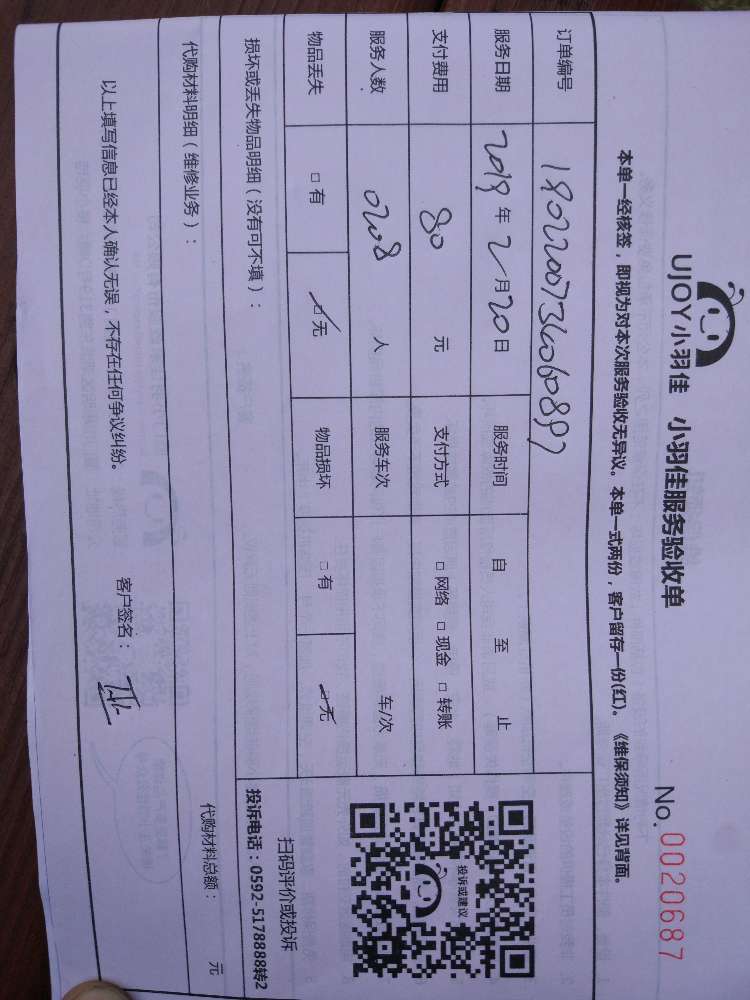 UJOY小羽佳 小羽佳服务验收单
No.0020687
本单一经核签，即视为对本次服务验收无异议。本单一式两份，客户留存一份(红)。《维保须知》详见背面。
订单编号
服务日期 2019年2月20日 服务时间 自 至 止
支付费用 80 元 支付方式 □ 网络 □ 现金 □ 转账
服务人数 0208 人 服务车次 车/次
物品丢失 □ 有 □ 无 物品损坏 □ 有 □ 无
损坏或丢失物品明细（没有可不填）：
投诉或建议
扫码评价或投诉
投诉电话：0592-5178888转2
代购材料明细（维修业务）： 代购材料总额： 元
以上填写信息已经本人确认无误，不存在任何争议纠纷。 客户签名：